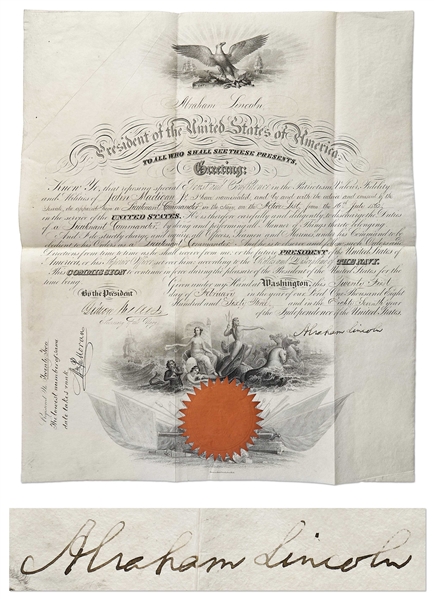 Abraham Lincoln
President of the United States of America.
TO ALL WHO SHALL SEE THESE PRESENTS,
Greeting:
Know Ye, that reposing special Trust and Confidence in the Patriotism, Valor, Fidelity
and Abilities of John Madigan Jr. I have nominated, and by and with the advice and consent of the
Senate, do appoint him a Lieutenant Commander in the Navy, from the 16th July 1862
in the service of the UNITED STATES. He is therefore carefully and diligently to discharge the Duties
of a Lieutenant Commander, by doing and performing all Manner of Things thereto belonging.
And I do strictly charge, and require all Officers, Seamen and Marines, under his Command to be
obedient to his Orders as a Lieutenant Commander. And he is to observe and follow such Orders and
Directions from time to time as he shall receive from me, or the future PRESIDENT of the United States of
America, THE NAVY.
This COMMISSION to continue in force during the pleasure of the President of the United States for the
time being.
Given under my Hand at Washington, this Twenty First
day of February in the year of our Lord One Thousand Eight
Hundred and Sixty Three and in the Year
of the Independence of the United States.
By the President
Gideon Welles
Secretary of the Navy
Abraham Lincoln
Registered No. Twenty Two
The lowest number of same
date takes rank
Moran
Abraham Lincoln